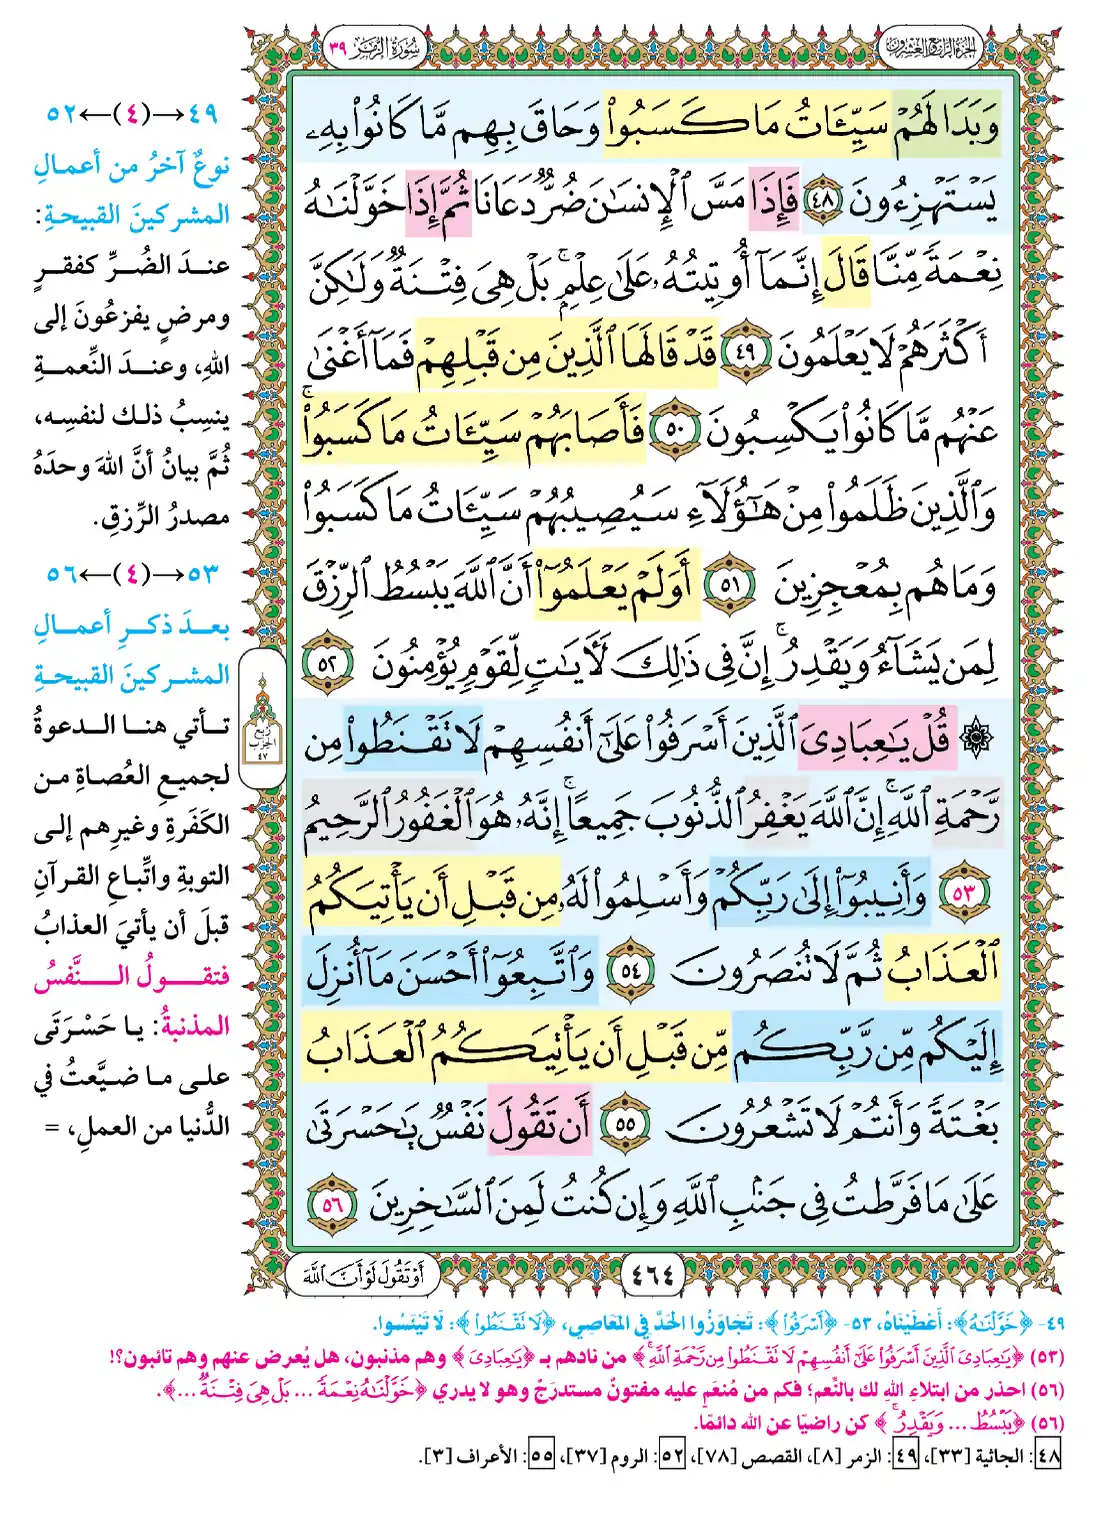 الجزء الرابع والعشرون
سورة الزمر ٣٩
وَبَدَا لَهُمْ سَيِّـَٔاتُ مَا كَسَبُوا۟ وَحَاقَ بِهِم مَّا كَانُوا۟ بِهِۦ
يَسْتَهْزِءُونَ ٤٨ فَإِذَا مَسَّ ٱلْإِنسَٰنَ ضُرٌّ دَعَانَا ثُمَّ إِذَا خَوَّلْنَٰهُ
نِعْمَةً مِّنَّا قَالَ إِنَّمَآ أُوتِيتُهُۥ عَلَىٰ عِلْمٍۭ ۚ بَلْ هِىَ فِتْنَةٌ وَلَٰكِنَّ
أَكْثَرَهُمْ لَا يَعْلَمُونَ ٤٩ قَدْ قَالَهَا ٱلَّذِينَ مِن قَبْلِهِمْ فَمَآ أَغْنَىٰ
عَنْهُم مَّا كَانُوا۟ يَكْسِبُونَ ٥٠ فَأَصَابَهُمْ سَيِّـَٔاتُ مَا كَسَبُوا۟ ۚ
وَٱلَّذِينَ ظَلَمُوا۟ مِنْ هَٰٓؤُلَآءِ سَيُصِيبُهُمْ سَيِّـَٔاتُ مَا كَسَبُوا۟
وَمَا هُم بِمُعْجِزِينَ ٥١ أَوَلَمْ يَعْلَمُوٓا۟ أَنَّ ٱللَّهَ يَبْسُطُ ٱلرِّزْقَ
لِمَن يَشَآءُ وَيَقْدِرُ ۚ إِنَّ فِى ذَٰلِكَ لَءَايَٰتٍ لِّقَوْمٍ يُؤْمِنُونَ ٥٢
۞ قُلْ يَٰعِبَادِىَ ٱلَّذِينَ أَسْرَفُوا۟ عَلَىٰٓ أَنفُسِهِمْ لَا تَقْنَطُوا۟ مِن
رَّحْمَةِ ٱللَّهِ ۚ إِنَّ ٱللَّهَ يَغْفِرُ ٱلذُّنُوبَ جَمِيعًا ۚ إِنَّهُۥ هُوَ ٱلْغَفُورُ ٱلرَّحِيمُ
٥٣ وَأَنِيبُوٓا۟ إِلَىٰ رَبِّكُمْ وَأَسْلِمُوا۟ لَهُۥ مِن قَبْلِ أَن يَأْتِيَكُمُ
ٱلْعَذَابُ ثُمَّ لَا تُنصَرُونَ ٥٤ وَٱتَّبِعُوٓا۟ أَحْسَنَ مَآ أُنزِلَ
إِلَيْكُم مِّن رَّبِّكُم مِّن قَبْلِ أَن يَأْتِيَكُمُ ٱلْعَذَابُ
بَغْتَةً وَأَنتُمْ لَا تَشْعُرُونَ ٥٥ أَن تَقُولَ نَفْسٌ يَٰحَسْرَتَىٰ
عَلَىٰ مَا فَرَّطتُ فِى جَنۢبِ ٱللَّهِ وَإِن كُنتُ لَمِنَ ٱلسَّٰخِرِينَ ٥٦
٤٦٤
أَوْ تَقُولَ لَوْ أَنَّ ٱللَّهَ
ربع
الحزب
٤٧
٤٩→(٤)←٥٢
نوعٌ آخرُ من أعمالِ
المشركينَ القبيحةِ:
عندَ الضُرِّ كفقرٍ
ومرضٍ يفزعُونَ إلى
اللهِ، وعندَ النِّعمةِ
ينسِبُ ذلك لنفسِه،
ثُمَّ بيانُ أنَّ اللهَ وحدَهُ
مصدرُ الرِّزقِ.
٥٣→(٤)←٥٦
بعدَ ذكرِ أعمالِ
المشركينَ القبيحةِ
تأتي هنا الدعوةُ
لجميعِ العُصاةِ من
الكَفَرةِ وغيرِهم إلى
التوبةِ واتِّباعِ القرآنِ
قبلَ أن يأتيَ العذابُ
فتقولُ النَّفسُ
المذنبةُ: يا حَسْرَتَى
على ما ضيَّعتُ في
الدُّنيا من العملِ، =
٤٩- ﴿خَوَّلْنَٰهُ﴾: أَعْطَيْنَاهُ، ٥٣- ﴿أَسْرَفُوا۟﴾: تَجَاوَزُوا الحَدَّ فِي المَعَاصِي، ﴿لَا تَقْنَطُوا۟﴾: لَا تَيْئَسُوا.
(٥٣) ﴿يَٰعِبَادِىَ ٱلَّذِينَ أَسْرَفُوا۟ عَلَىٰٓ أَنفُسِهِمْ لَا تَقْنَطُوا۟ مِن رَّحْمَةِ ٱللَّهِ ۚ﴾ من نادهم بـ ﴿يَٰعِبَادِىَ﴾ وهم مذنبون، هل يُعرض عنهم وهم تائبون؟!
(٥٦) احذر من ابتلاءِ اللهِ لك بالنِّعم؛ فكم من مُنعَمٍ عليه مفتونٌ مستدرَجٌ وهو لا يدري ﴿خَوَّلْنَٰهُ نِعْمَةً ... بَلْ هِىَ فِتْنَةٌ ...﴾.
(٥٦) ﴿يَبْسُطُ ... وَيَقْدِرُ ۚ﴾ كن راضيًا عن الله دائمًا.
٤٨: الجاثية [٣٣]، ٤٩: الزمر [٨]، القصص [٧٨]، ٥٢: الروم [٣٧]، ٥٥: الأعراف [٣].